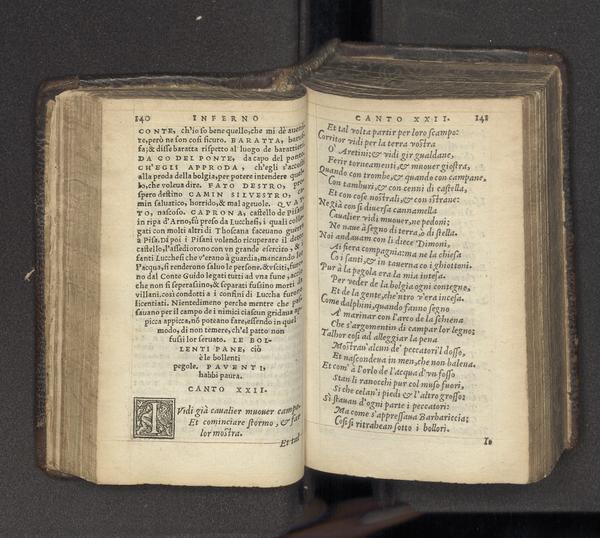 140 INFERNO
CONTE, ch'io so bene quello, che mi dè auueni
re, però ne son cosi sicuro. BARATTA, baruf
fa; & disse baratta rispetto al luogo de barattieri.
DA CO DEL PONTE, da capo del ponte.
CH'EGLI APPRODA, ch'egli s'accosti
alla proda della bolgia, per potere intendere quel
lo, che voleua dire. FATO DESTRO, pro
spero destino CAMIN SILVESTRO, ca
min saluatico, horrido, & mal ageuole. QVAT
TO, nascoso. CAPRONA, castello de Pisani
in ripa d'Arno, fu preso da Lucchesi, i quali colle
gati con molti altri di Thoscana faceuano guerra
à Pisa. Di poi i Pisani volendo ricuperare il detto
castello, l'assediorono con vn grande esercito, &
fanti Lucchesi che v'erano à guardia, mancando lor
l'acqua, si renderono saluo le persone. & vsciti, furo
no dal Conte Guido legati tutti ad vna fune, acciò
che non si seperassino, & separati fussino morti da
villani. così condotti a i confini di Luccha furono
licentiati. Nientedimeno perche mentre che pas
sauano per il campo de i nimici ciascun gridaua ap
picca appicca, nō poteano fare, essendo in quel
modo, di non temere, ch'el patto non
fussi lor seruato. LE BOL
LENTI PANE, ciò
è le bollenti
pegole. PAVENTI,
habbi paura.
CANTO XXII.
IVidi già caualier muouer campo,
Et cominciare stormo, & far
lor mostra.
Et tal
CANTO XXII. 141
Et tal volta partir per loro scampo:
Corritor vidi per la terra vostra
O' Aretini; & vidi gir gualdane,
Ferir torneamenti, & muouer giostra,
Quando con trombe, & quando con campane,
Con tamburi, & con cenni di castella,
Et con cose nostrali, & con istrane:
Ne già con si diuersa cannamella
Caualier vidi muouer, ne pedoni;
Ne naue à segno di terra, ò di stella.
Noi andauam con li diece Dimoni,
Ai fiera compagnia: ma ne la chiesa
Co i santi, & in tauerna co i ghiottoni.
Pur à la pegola era la mia intesa.
Per veder de la bolgia ogni contegno,
Et de la gente, ch'entro v'era incesa.
Come dalphini, quando fanno segno
A marinar con l'arco de la schiena
Che s'argomentin di campar lor legno;
Talhor così ad alleggiar la pena
Mostrau' alcun de' peccatori'l dosso,
Et nascondeua in men, che non balena.
Et com' à l'orlo de l'acqua d'vn fosso
Stan li ranocchi pur col muso fuori,
Si che celan'i piedi & l'altro grosso;
Si stauan d'ogni parte i peccatori:
Ma come s'appressaua Barbariccia;
Cosi si ritrahean sotto i bollori.
Io